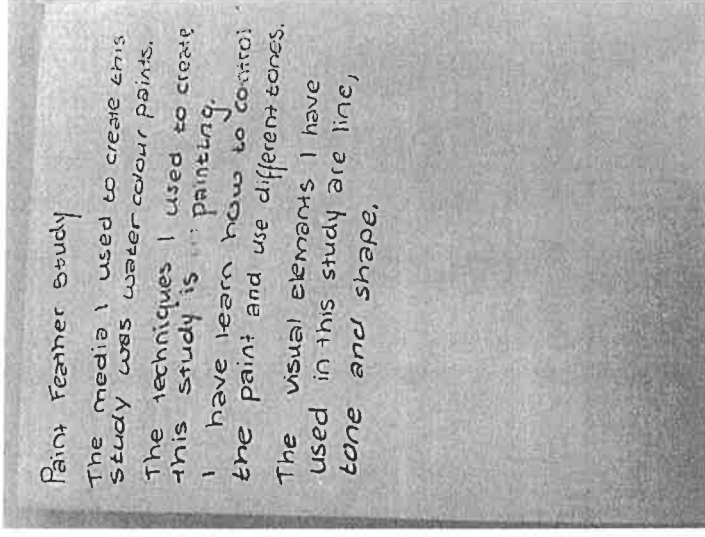 Paint Feather Study
The media I used to create this
study was water colour paints.
The techniques I used to create
this study is painting.
I have learn how to control
the paint and use different tones.
The visual elemants I have
used in this study are line,
tone and shape,